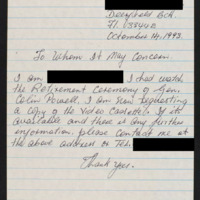 Deerfield Bch.
Fl. 33442
October 14, 1993.
To Whom It May Concern.
I am I had watch
the Retirement Ceremony of Gen.
Colin Powell. I am now requesting
a copy of the Video Cassette. If its
available and there is any further
information please contact me at
the above address or Tel:
Thank you.